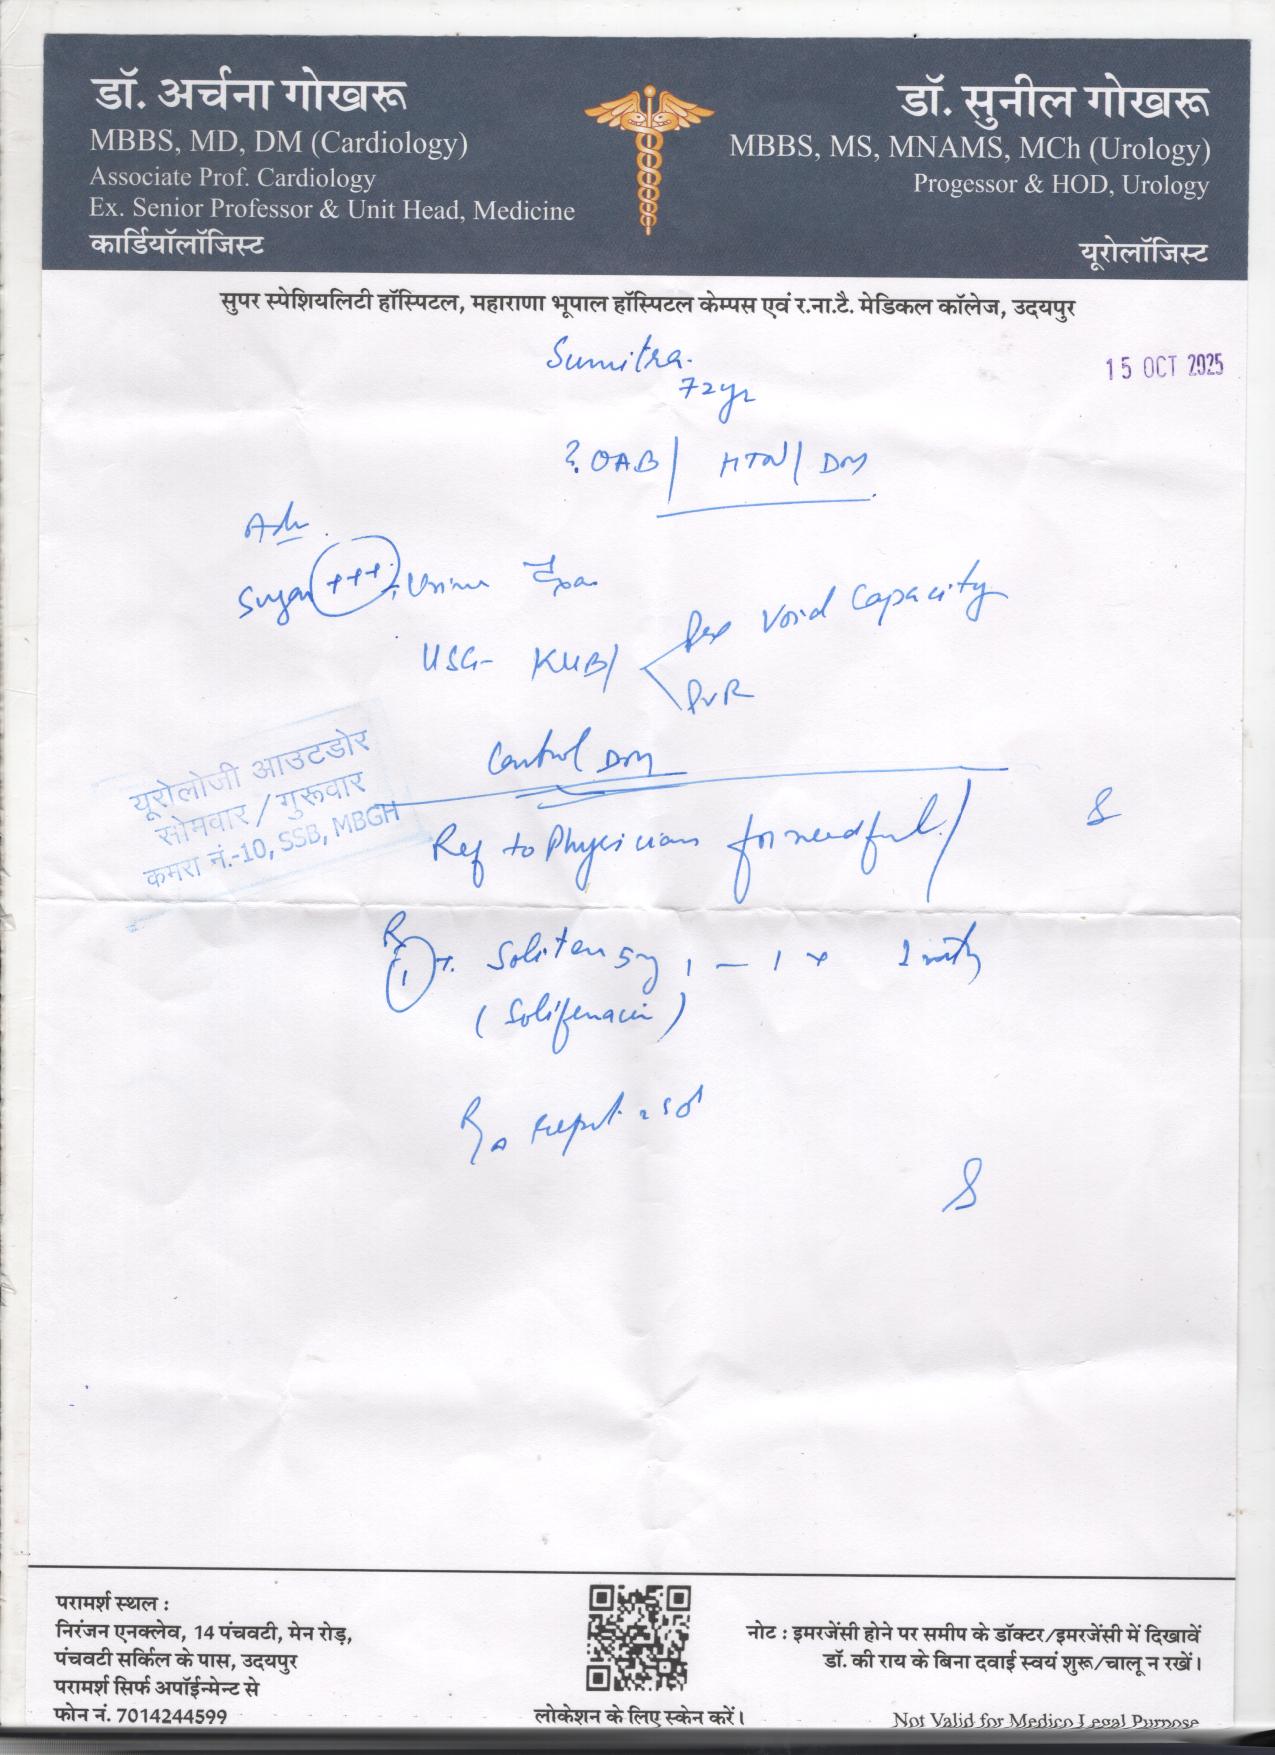 डॉ. अर्चना गोखरू
MBBS, MD, DM (Cardiology)
Associate Prof. Cardiology
Ex. Senior Professor & Unit Head, Medicine
कार्डियॉलॉजिस्ट
डॉ. सुनील गोखरू
MBBS, MS, MNAMS, MCh (Urology)
Progessor & HOD, Urology
यूरोलॉजिस्ट
सुपर स्पेशियलिटी हॉस्पिटल, महाराणा भूपाल हॉस्पिटल केम्पस एवं र.ना.टै. मेडिकल कॉलेज, उदयपुर
Sumitra.
15 OCT 2025
72yr
? OAB / HTN / DM
Adv.
Sugar +++, Urine Exa.
Void Capacity
USG- KUB/
PVR
Control DM
यूरोलोजी आउटडोर
सोमवार / गुरूवार
कमरा नं.-10, SSB, MBGH
Ref to Physician for needful/
Rx
1 T. Soliten 5mg 1 — 1 x
(Solifenacin)
परामर्श स्थल :
निरंजन एनक्लेव, 14 पंचवटी, मेन रोड़,
पंचवटी सर्किल के पास, उदयपुर
परामर्श सिर्फ अपॉईन्मेन्ट से
फोन नं. 7014244599
लोकेशन के लिए स्केन करें।
नोट : इमरजेंसी होने पर समीप के डॉक्टर/इमरजेंसी में दिखावें
डॉ. की राय के बिना दवाई स्वयं शुरू/चालू न रखें।
Not Valid for Medico Legal Purpose